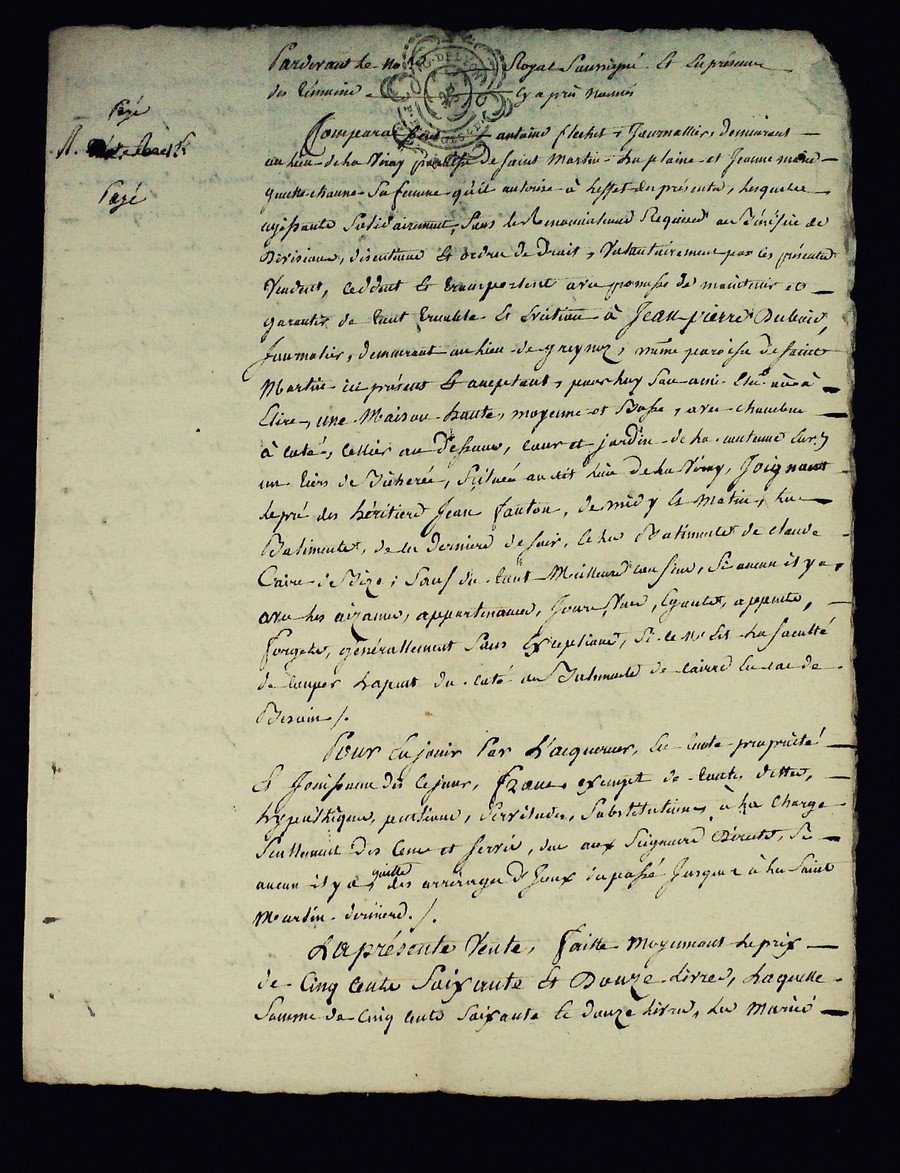 Pardevant le No.re Royal Soussigné Et En présence
des témoins cy après nommés
payé
Comparai antoine flechet, Journallier, demeurant
au lieu de la Viray paroisse de saint Martin la plaine et Jeanne mari
payé
guitte channe Sa femme qu'il autorise à l'effet des présentes, lesquels
agissants Solidairement, sous les Renonciations Requises au Bénéfice de
Divisions, discutions Et ordre de Droit, Volontairement par ces présentes
Vendent, ceddent Et transportent avec promesse de maintenir et
garantir de tout trouble Et Eviction à Jean pierre Dubois,
Journalier, demeurant au lieu de greynoz, même paroisse de saint
Martin ici présent Et acceptant, pour luy Son ami Elu ou à
Elire, une Maison haute, moyenne et Basse, avec chambre
à coté, cellier au Dessous, cour et jardin de la contenue Sur.
un tiers de Bicherée, Scituée au dit lieu de la Viray, Joignant
le pré des héritiers Jean fanton, de midy Et Matin, les
Batiments, de ces derniers de soir, Et les Batiments de claude
Caire de Bize; Sauf du tout Meilleurs confins, Si aucun il y a,
avec les aizances, appartenances, Jours, Vues, Egouts, appents,
forgets, généralement Sans Exceptions, Si ce n'Est la faculté
de couper du coté au Batiments de Cairre En cas de
Besoin /.
Pour En jouir par l'acquereur, En toute propriété
Et Jouissance dès ce jour, franc, exempt de toutes dettes,
hypothèques, pensions, Servitudes, Substitutions, à la Charge
Seullement des Cens et Servis, dus aux Seigneurs Directs, Si
aucun il y a, quitte des arrérages d'Iceux du passé Jusques à la Saint
Martin dernierd. /.
La présente Vente, faitte moyennant le prix
de Cinq cents Soixante Et Douze Livres, Laquelle
Somme de Cinq cents Soixante Et douze Livres, les Mariés